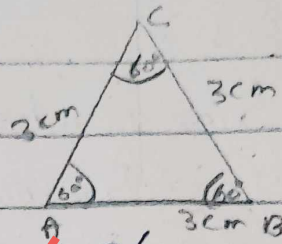 C
60°
3cm
3cm
60°
60°
A
3cm
B